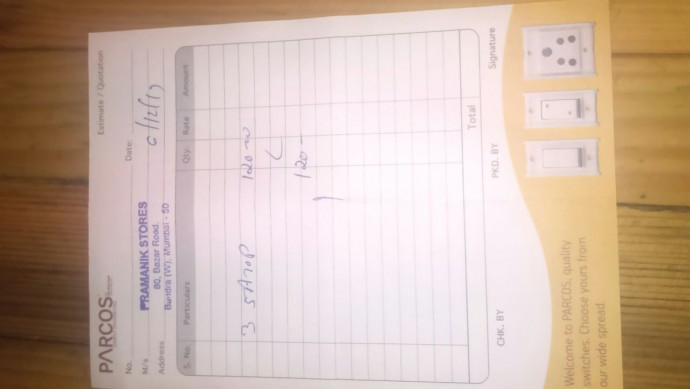 PARCOS
Estimate / Quotation
No.
Date:
M/s
PRAMANIK STORES
6/12/19
Address
80, Bazar Road,
Bandra (W), Mumbai - 50
S. No. Particulars Qty. Rate Amount
3 5A TOP 120 00
120 -
Total
CHK. BY PKD. BY Signature
Welcome to PARCOS, quality
switches. Choose yours from
our wide spread.